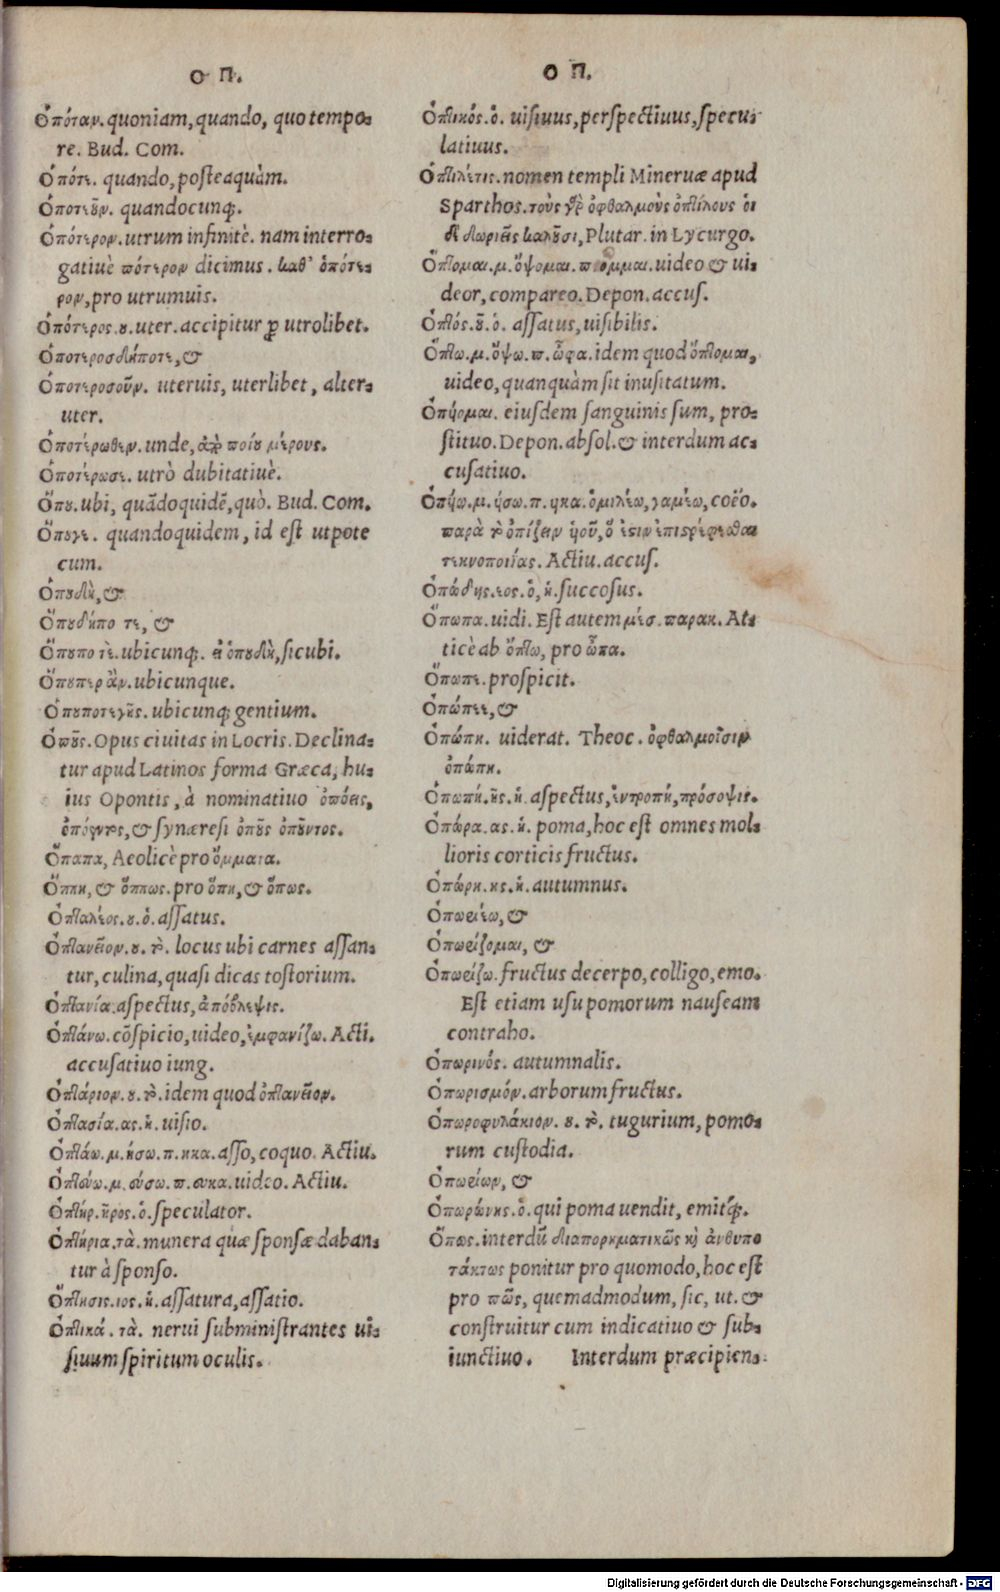 Ο Π.
Ὁπόταν. quoniam, quando, quo tempo-
re. Bud. Com.
Ὁπότε. quando, posteaquàm.
Ὁποτεοῦν. quandocunq;.
Ὁπότερον. utrum infinitè. nam interro-
gatiuè πότερον dicimus. καθ' ὁπότε-
ρον, pro utrumuis.
Ὁπότερος. ου. uter. accipitur ꝓ utrolibet.
Ὁποτεροσδήποτε, &
Ὁποτεροσοῦν. uteruis, uterlibet, alter-
uter.
Ὁποτέρωθεν. unde, ἀπὸ ποίου μέρους.
Ὁποτέρωσε. utrò dubitatiuè.
Ὅπου. ubi, quādoquidē, quò. Bud. Com.
Ὅπουγε. quandoquidem, id est utpote
cum.
Ὁπουδὴ, &
Ὅπουδήπο τε, &
Ὅπουπο τὲ. ubicunq;. εἰ ὁπουδὴ, sicubi.
Ὅπουπερ ἂν. ubicunque.
Ὁπουποτεγῆς. ubicunq; gentium.
Ὀποῦς. Opus ciuitas in Locris. Declina-
tur apud Latinos forma Græca, hu-
ius Opontis, à nominatiuo ὀπόεις,
ὀπόεντος, & synæresi ὀποῦς ὀποῦντος.
Ὄππαπα, Aeolicè pro ὄμματα.
Ὅππη, & ὅππως. pro ὅπη, & ὅπως.
Ὀπταλέος. ου. ὁ. assatus.
Ὀπτανεῖον. ου. τὸ. locus ubi carnes assan-
tur, culina, quasi dicas tostorium.
Ὀπτανία. aspectus, ἀπόβλεψις.
Ὀπτάνω. cōspicio, uideo, ἐμφανίζω. Acti.
accusatiuo iung.
Ὀπτάριον. ου. τὸ. idem quod ὀπτανεῖον.
Ὀπτασία. ας. ἡ. uisio.
Ὀπτάω. μ. ήσω. π. ηκα. asso, coquo. Actiu.
Ὀπτεύω. μ. εύσω. π. ευκα. uideo. Actiu.
Ὀπτήρ. ῆρος. ὁ. speculator.
Ὀπτήρια. τὰ. munera quæ sponsæ daban-
tur à sponso.
Ὄπτησις. ιος. ἡ. assatura, assatio.
Ὀπτικά. τὰ. nerui subministrantes ui-
siuum spiritum oculis.
Ο Π.
Ὀπτικός. ὁ. uisiuus, perspectiuus, specu-
latiuus.
Ὀπτιλέτις. nomen templi Mineruæ apud
Sparthos. τοὺς γὰρ ὀφθαλμοὺς ὀπτίλους οἱ
δὲ δωριεῖς καλοῦσι, Plutar. in Lycurgo.
Ὄπτομαι. μ. ὄψομαι. π ομμαι. uideo & ui-
deor, compareo. Depon. accus.
Ὀπτός. οῦ. ὁ. assatus, uisibilis.
Ὄπτω. μ. ὄψω. π. ὦφα. idem quod ὄπτομαι,
uideo, quanquàm sit inusitatum.
Ὀπύομαι. eiusdem sanguinis sum, pro-
stituo. Depon. absol. & interdum ac-
cusatiuo.
Ὀπύω. μ. ύσω. π. υκα. ὁμιλέω, γαμέω, coëo.
παρὰ τὸ ὀπίζειν ἡοῦν, ὅ ἐστιν ἐπιστρέφεσθαι
τεκνοποιΐας. Actiu. accus.
Ὀπώδης. εος. ὁ, ἡ. succosus.
Ὄπωπα. uidi. Est autem μέσ. παρακ. At-
ticè ab ὄπτω, pro ὦπα.
Ὄπωπε. prospicit.
Ὀπώπεε, &
Ὀπώπη. uiderat. Theoc. ὀφθαλμοῖσιν
ὀπώπη.
Ὀπωπή. ῆς. ἡ. aspectus, ἐντροπή, πρόσοψις.
Ὀπώρα. ας. ἡ. poma, hoc est omnes mol-
lioris corticis fructus.
Ὀπώρη. ης. ἡ. autumnus.
Ὀπωριέω, &
Ὀπωρίζομαι, &
Ὀπωρίζω. fructus decerpo, colligo, emo.
Est etiam usu pomorum nauseam
contraho.
Ὀπωρινός. autumnalis.
Ὀπωρισμόν. arborum fructus.
Ὀπωροφυλάκιον. ου. τὸ. tugurium, pomo-
rum custodia.
Ὀπωρίων, &
Ὀπωρώνης. ὁ. qui poma uendit, emitq́;.
Ὅπως. interdū διαπορηματικῶς καὶ ἀνθυπο
τάκτως ponitur pro quomodo, hoc est
pro πῶς, quemadmodum, sic, ut. &
construitur cum indicatiuo & sub-
iunctiuo. Interdum præcipien-
Digitalisierung gefördert durch die Deutsche Forschungsgemeinschaft - DFG